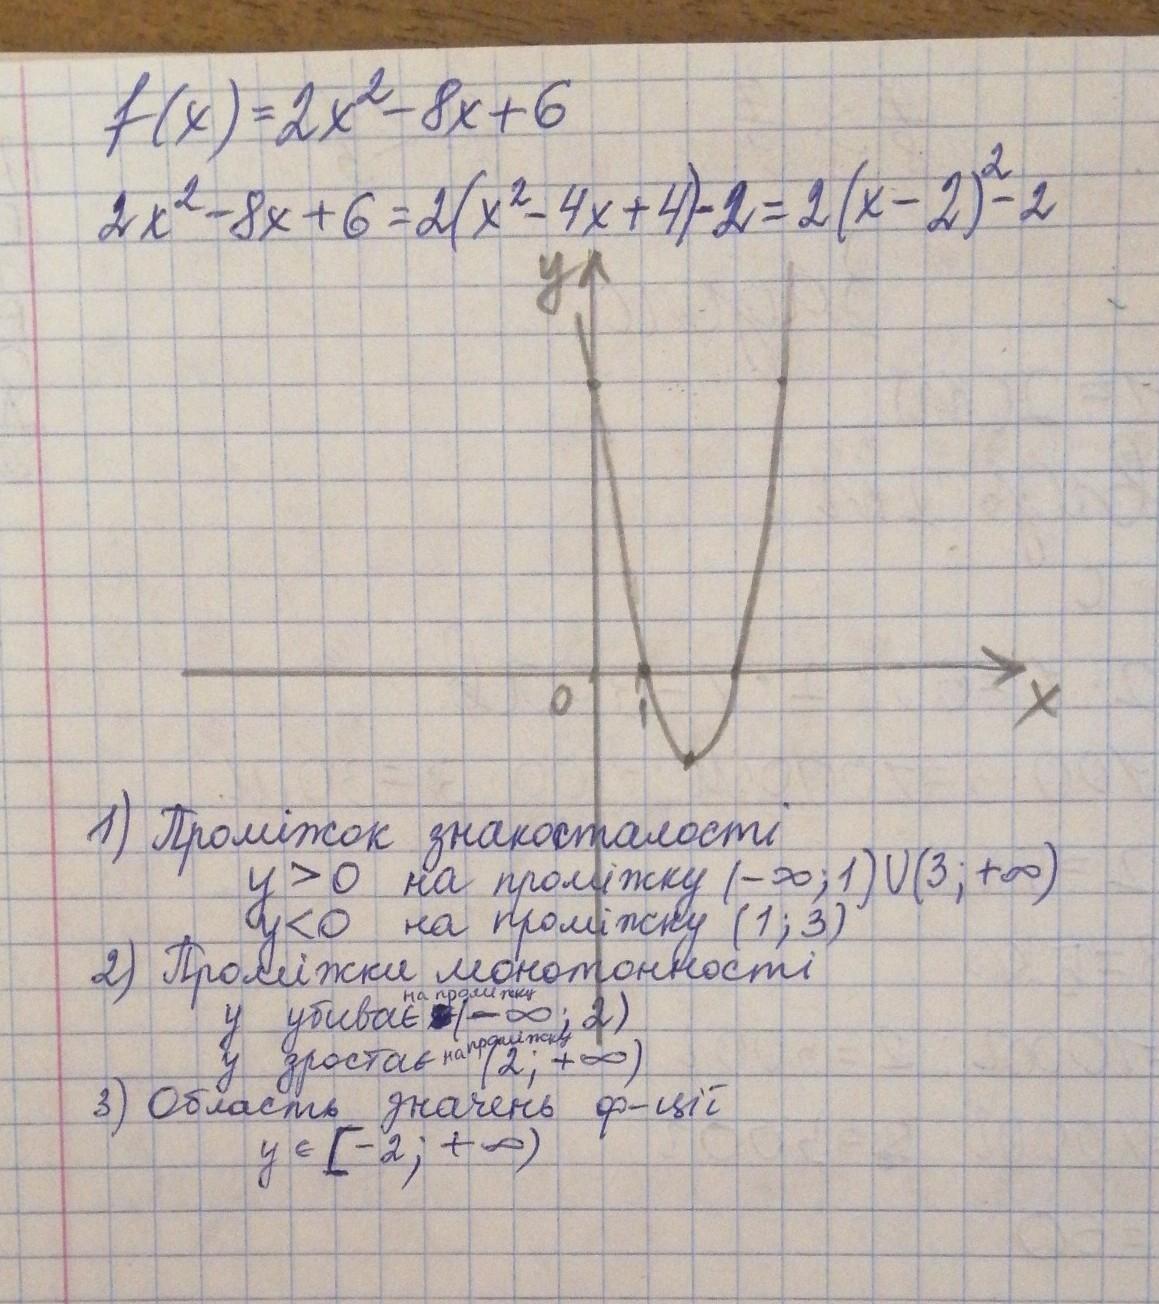 f(x)=2x²-8x+6
2x²-8x+6=2(x²-4x+4)-2=2(x-2)²-2
y
0 1 x
1) Проміжок знакосталості
y>0 на проміжку (-∞;1)∪(3;+∞)
y<0 на проміжку (1;3)
2) Проміжки монотонності
y убиває на проміжку (-∞;2)
y зростає на проміжку (2;+∞)
3) Область значень ф-ції
y∈[-2;+∞)